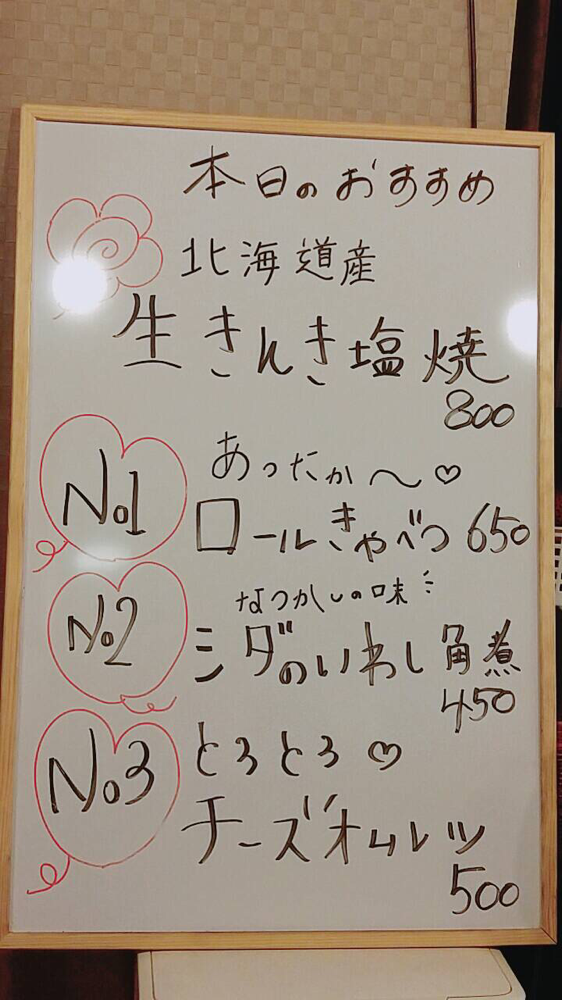 本日のおすすめ
北海道産
生きんき塩焼
800
No1
あったか〜♡
ロールきゃべつ 650
No2
なつかしの味
ミダのいわし角煮
450
No3
とろとろ♡
チーズオムレツ
500